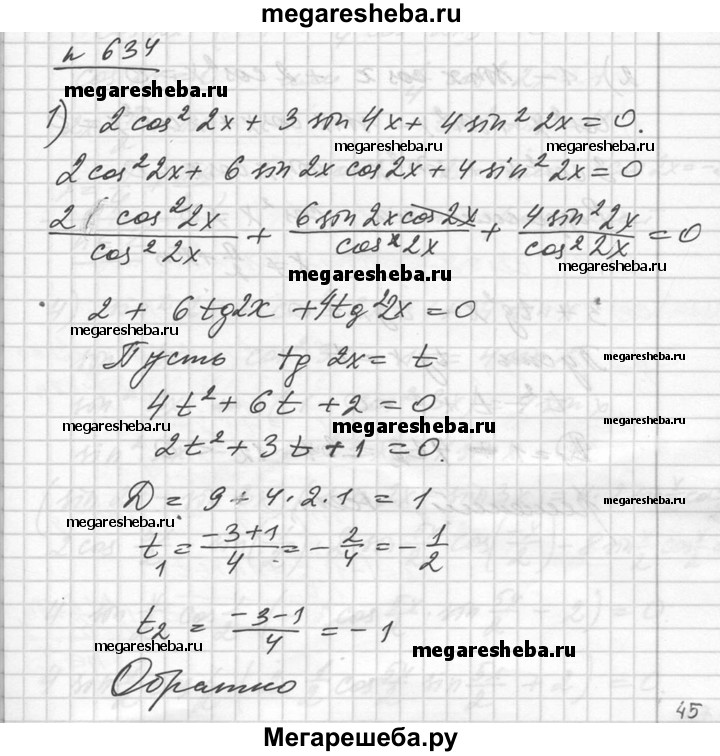 megaresheba.ru
n 634
megaresheba.ru
1) 2 cos² 2x + 3 sin 4x + 4 sin² 2x = 0.
megaresheba.ru
2 cos² 2x + 6 sin 2x cos 2x + 4 sin² 2x = 0
megaresheba.ru
2 cos² 2x / cos² 2x + 6 sin 2x cos 2x / cos² 2x + 4 sin² 2x / cos² 2x = 0
megaresheba.ru
megaresheba.ru
2 + 6 tg 2x + 4 tg² 2x = 0
megaresheba.ru
Пусть tg 2x = t
megaresheba.ru
4t² + 6t + 2 = 0
megaresheba.ru
2t² + 3t + 1 = 0.
D = 9 - 4·2·1 = 1
megaresheba.ru
megaresheba.ru
t₁ = (-3+1)/4 = -2/4 = -1/2
t₂ = (-3-1)/4 = -1
megaresheba.ru
megaresheba.ru
Обратно
45
Мегарешеба.ру